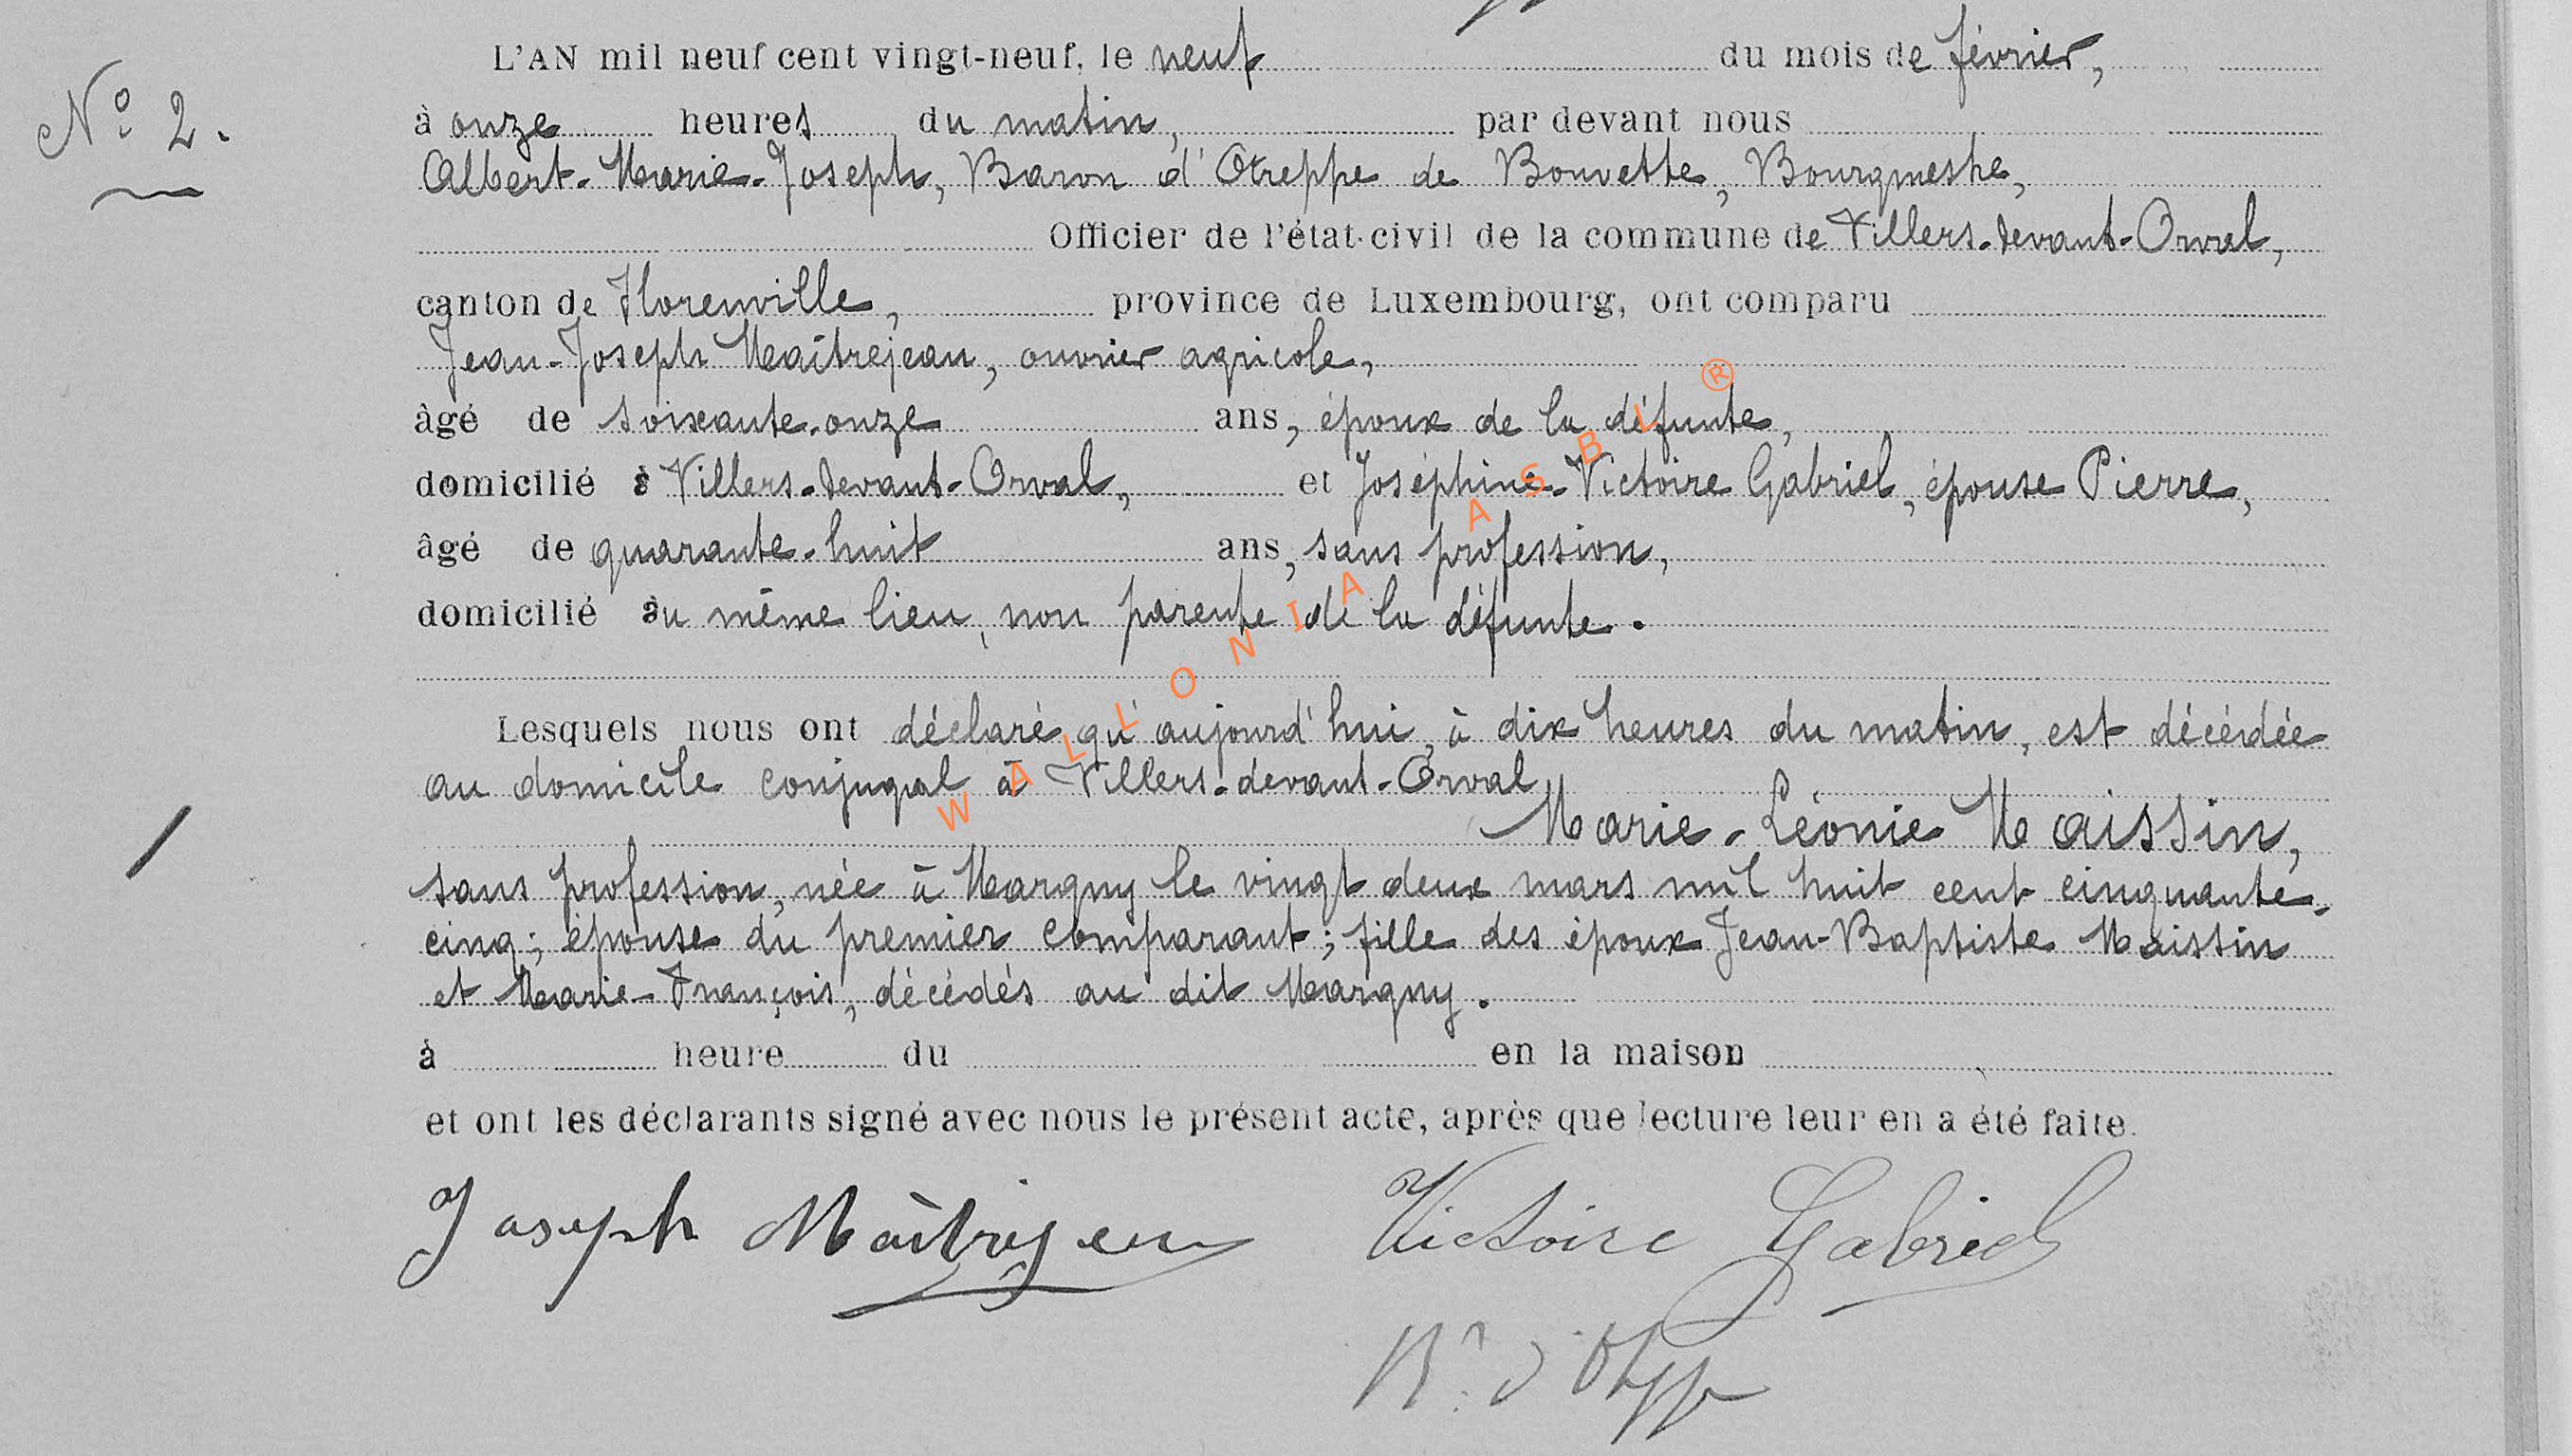 L'AN mil neuf cent vingt-neuf, le neuf du mois de février,
N° 2.
à onze heures du matin, par devant nous
Albert-Marie-Joseph, Baron d'Otreppe de Bouvette, Bourgmestre,
Officier de l'état-civil de la commune de Villers-devant-Orval,
canton de Florenville, province de Luxembourg, ont comparu
Jean-Joseph Maîtrejean, ouvrier agricole,
âgé de soixante-onze ans, époux de la défunte,
domicilié à Villers-devant-Orval, et Joséphine-Victoire Gabriel, épouse Pierre,
âgé de quarante-huit ans, sans profession,
domicilié au même lieu, non parente de la défunte.
Lesquels nous ont déclaré qu'aujourd'hui, à dix heures du matin, est décédée
au domicile conjugal à Villers-devant-Orval
Marie-Léonie Maissin,
sans profession, née à Margny le vingt deux mars mil huit cent cinquante-
cinq; épouse du premier comparant; fille des époux Jean-Baptiste Maissin
et Marie-François, décédés au dit Margny.
à heure du en la maison
et ont les déclarants signé avec nous le présent acte, après que lecture leur en a été faite.
Joseph Maîtrejean Victoire Gabriel
Bn d'Otreppe
WALLONIA ASBL ®